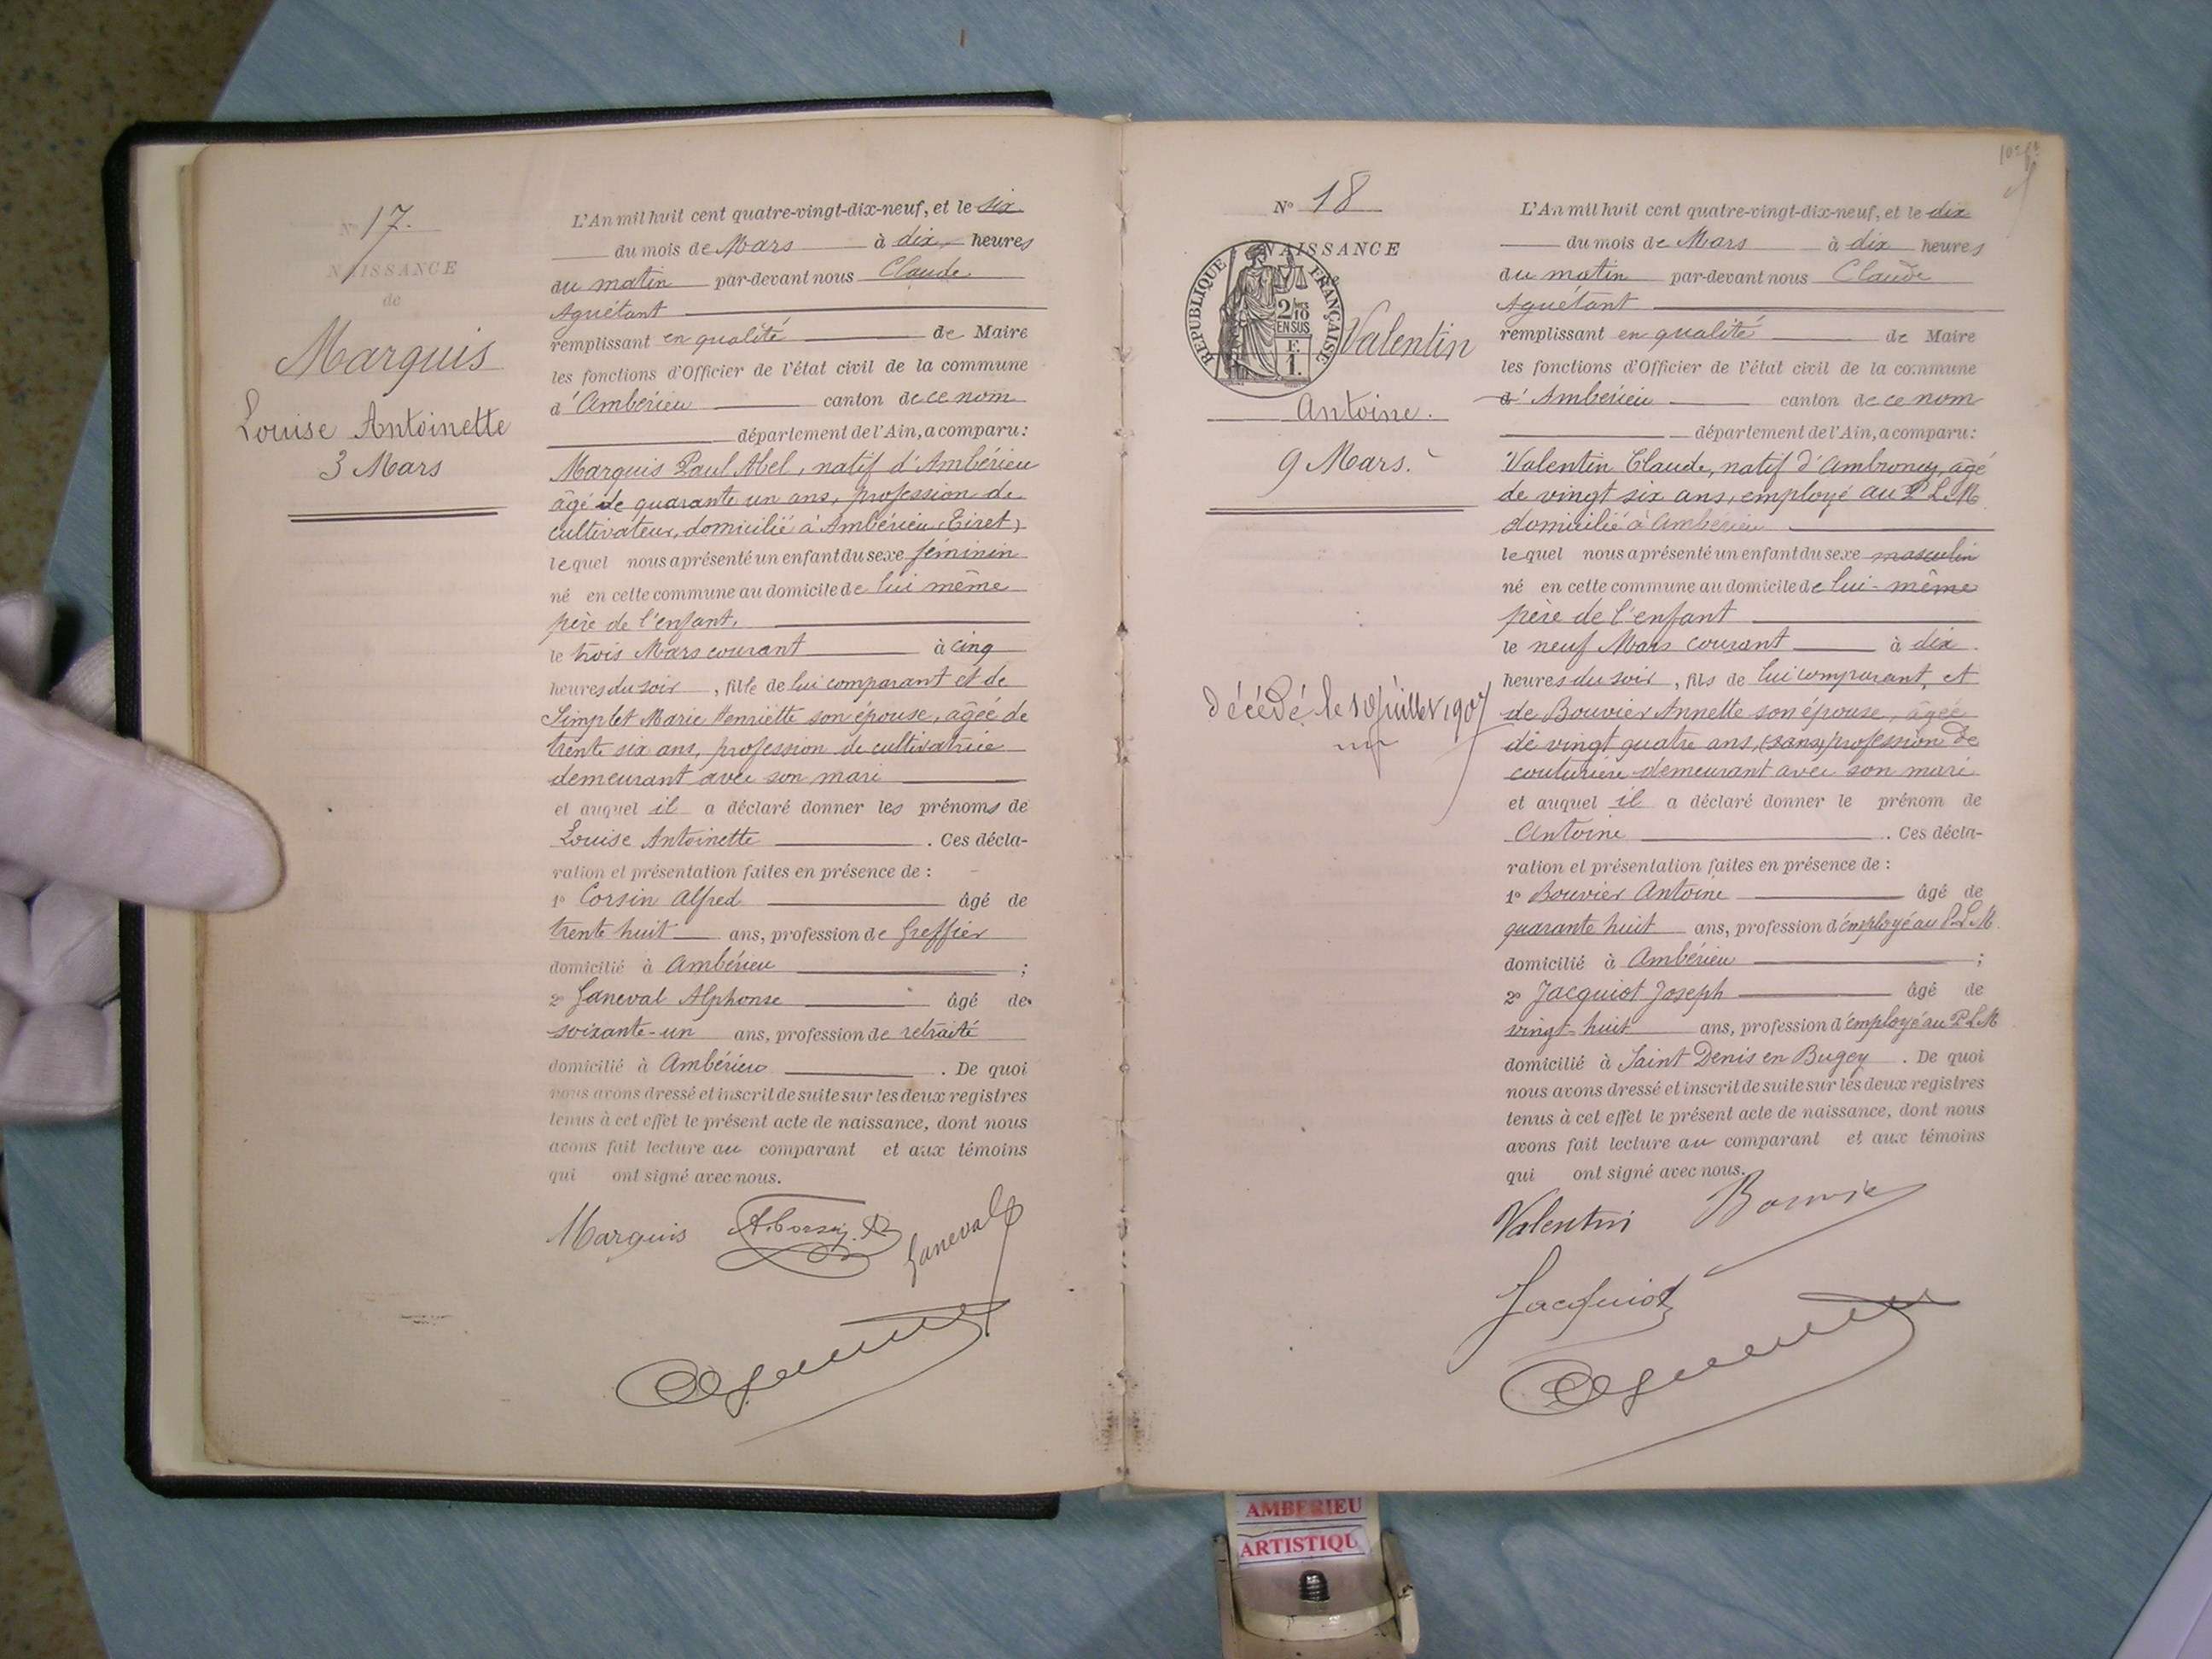 N° 17.
NAISSANCE
de
Marquis
Louise Antoinette
3 Mars
L'An mil huit cent quatre-vingt-dix-neuf, et le six
du mois de Mars à dix heures
du matin par-devant nous Claude
Aguétant
remplissant en qualité de Maire
les fonctions d'Officier de l'état civil de la commune
d'Ambérieu canton de ce nom
département de l'Ain, a comparu:
Marquis Paul Abel, natif d'Ambérieu
âgé de quarante un ans, profession de
cultivateur, domicilié à Ambérieu (Tiret)
lequel nous a présenté un enfant du sexe féminin
né en cette commune au domicile de lui même
père de l'enfant,
le trois Mars courant à cinq
heures du soir, fille de lui comparant et de
Simplet Marie Henriette son épouse, âgée de
trente six ans, profession de cultivatrice
demeurant avec son mari
et auquel il a déclaré donner les prénoms de
Louise Antoinette. Ces décla-
ration et présentation faites en présence de:
1° Corsin Alfred âgé de
trente huit ans, profession de Greffier
domicilié à Ambérieu ;
2° Ganeval Alphonse âgé de
soixante-un ans, profession de retraité
domicilié à Ambérieu. De quoi
nous avons dressé et inscrit de suite sur les deux registres
tenus à cet effet le présent acte de naissance, dont nous
avons fait lecture au comparant et aux témoins
qui ont signé avec nous.
Marquis A. Corsin Ganeval
N° 18
NAISSANCE
RÉPUBLIQUE FRANÇAISE
2/10
EN SUS
F.
1.
Valentin
Antoine.
9 Mars.
décédé le 10 juillet 1907
L'An mil huit cent quatre-vingt-dix-neuf, et le dix
du mois de Mars à dix heures
du matin par-devant nous Claude
Aguétant
remplissant en qualité de Maire
les fonctions d'Officier de l'état civil de la commune
d'Ambérieu canton de ce nom
département de l'Ain, a comparu:
Valentin Claude, natif d'Ambronay, âgé
de vingt six ans, employé au P L M
domicilié à Ambérieu
lequel nous a présenté un enfant du sexe masculin
né en cette commune au domicile de lui-même
père de l'enfant
le neuf Mars courant à dix
heures du soir, fils de lui comparant, et
de Bouvier Annette son épouse, âgée
de vingt quatre ans, (sans) profession de
couturière demeurant avec son mari
et auquel il a déclaré donner le prénom de
Antoine. Ces décla-
ration et présentation faites en présence de:
1° Bouvier Antoine âgé de
quarante huit ans, profession d'employé au P.L.M
domicilié à Ambérieu ;
2° Jacquiot Joseph âgé de
vingt-huit ans, profession d'employé au P L M
domicilié à Saint Denis en Bugey. De quoi
nous avons dressé et inscrit de suite sur les deux registres
tenus à cet effet le présent acte de naissance, dont nous
avons fait lecture au comparant et aux témoins
qui ont signé avec nous.
Valentin Bouvier
Jacquiot
AMBERIEU
ARTISTIQU